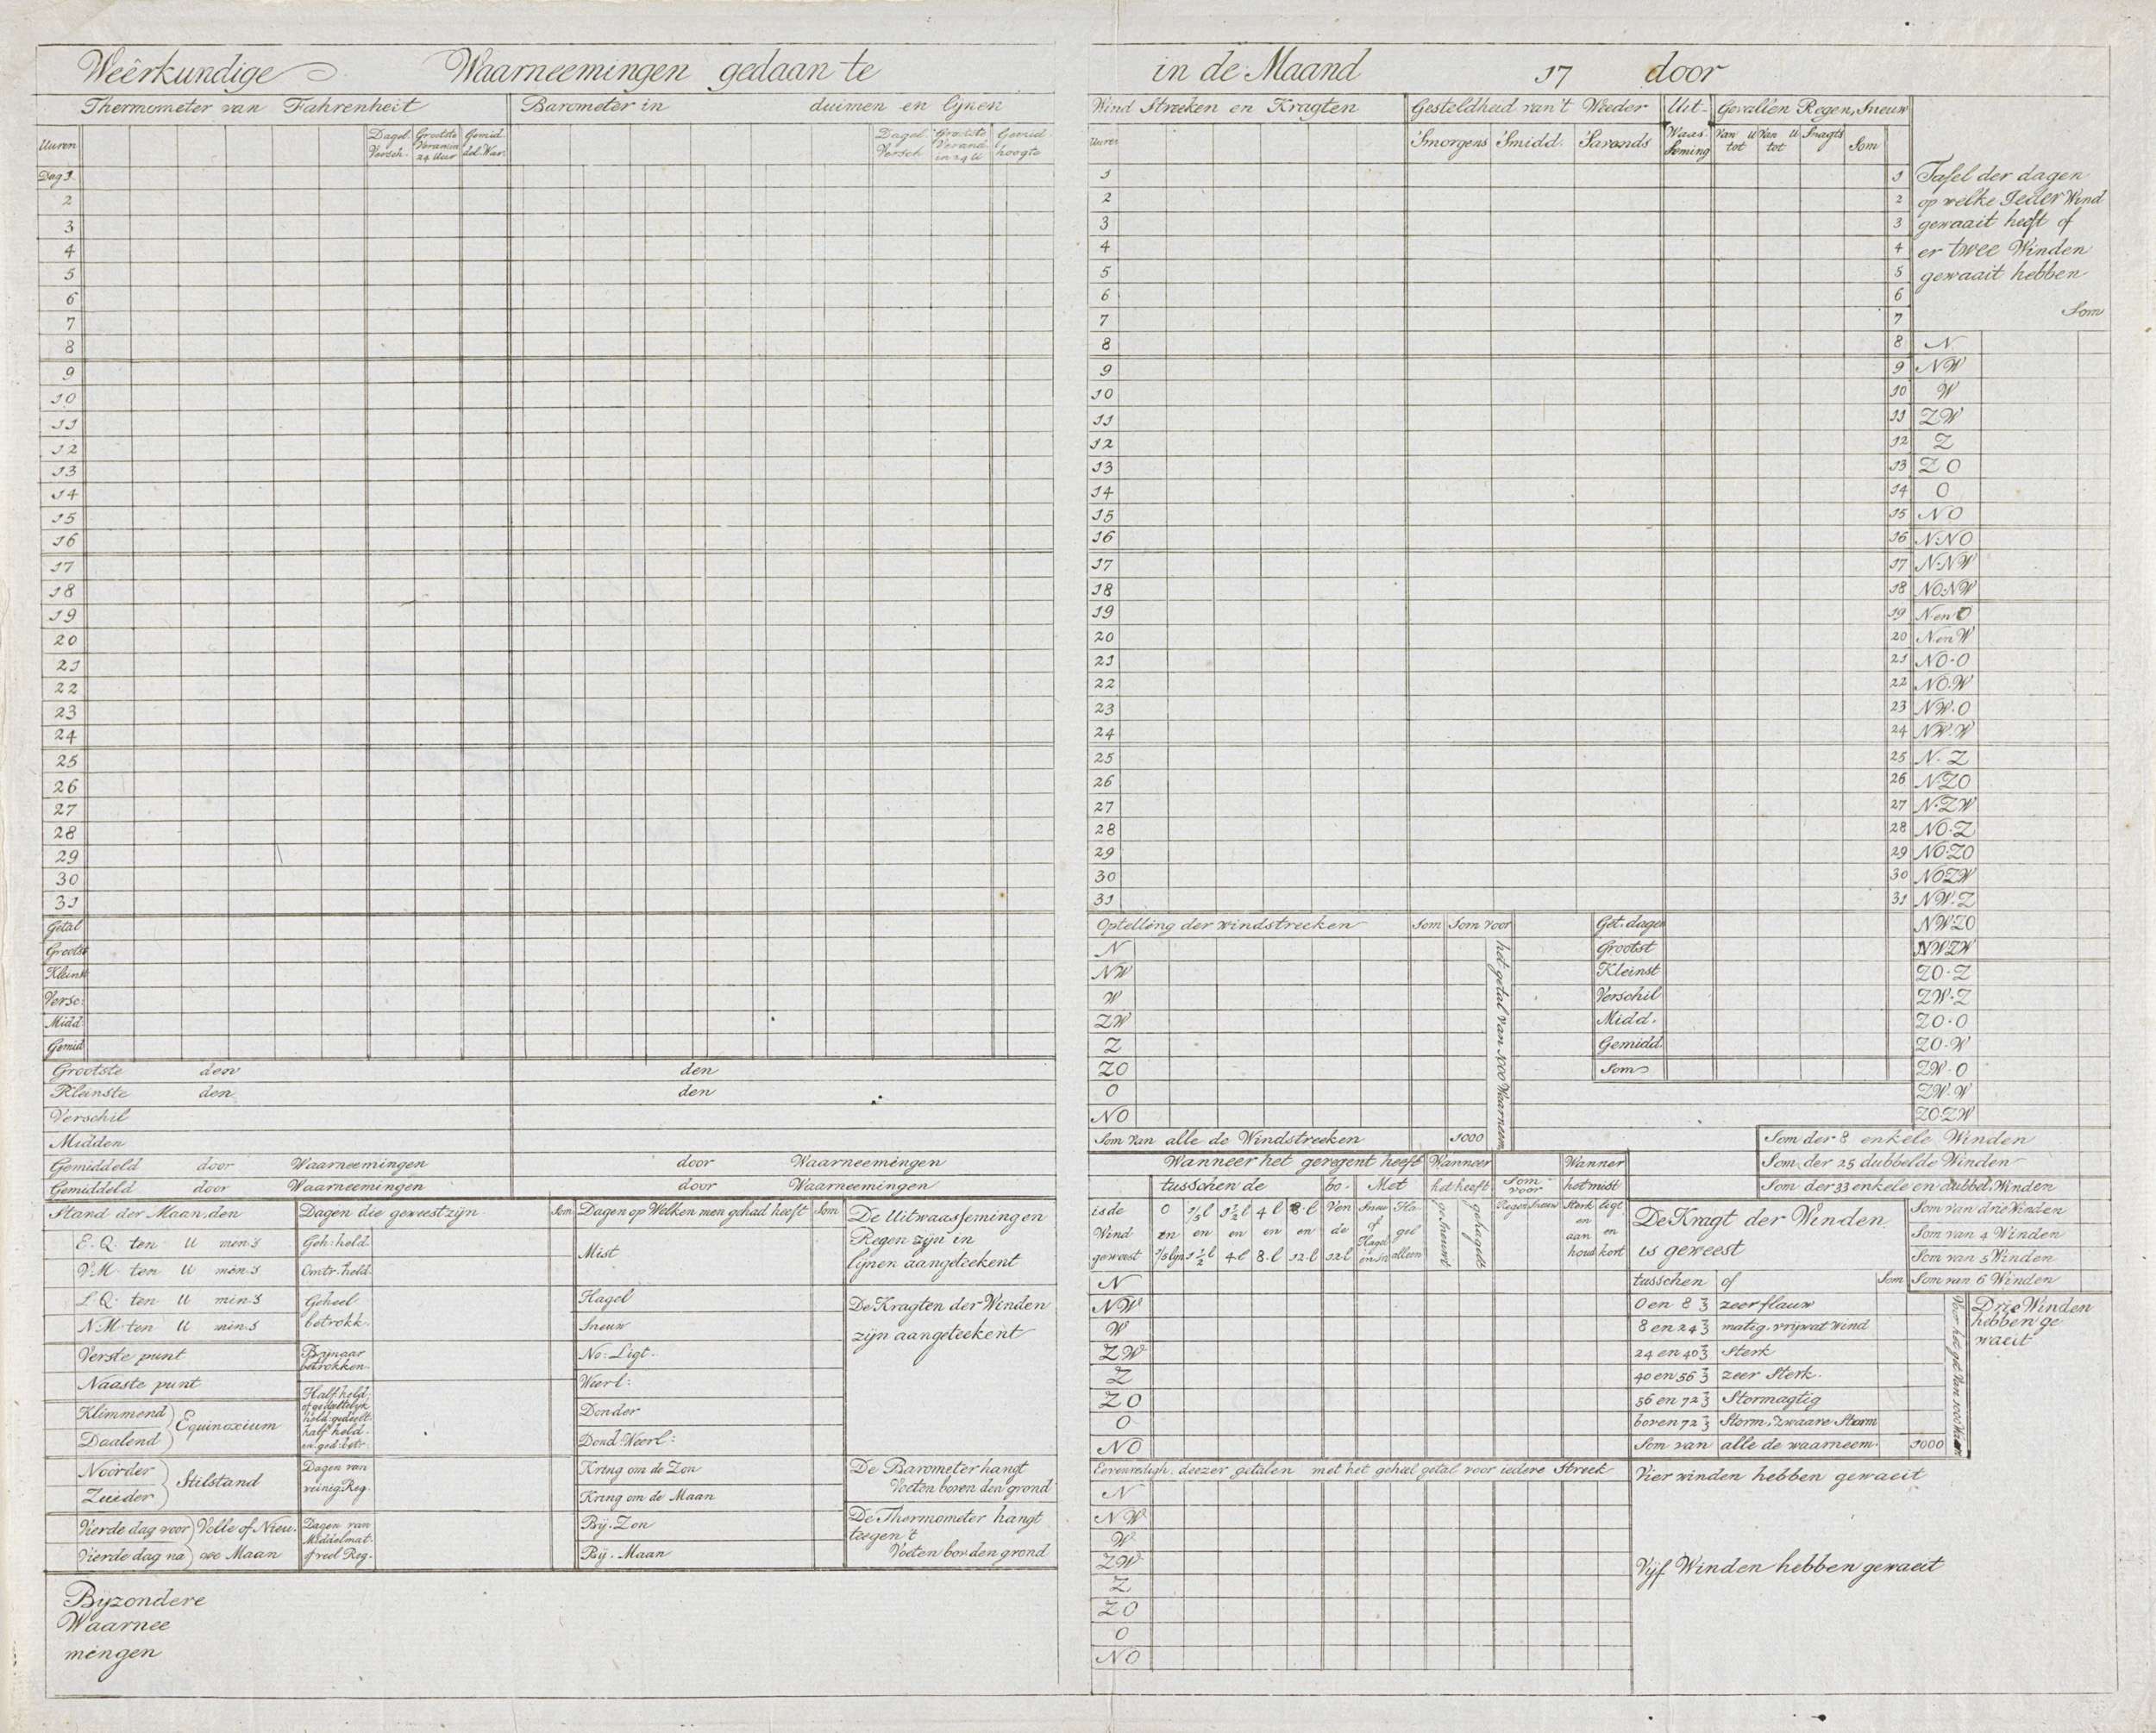 Weêrkundige Waarneemingen gedaan te in de Maand 17 door
Thermometer van Fahrenheit
Barometer in duimen en lijnen
Uuren
Dagel. Versch.
Grootste Verand. in 24 U
Gemid. hoogte
Dag 1
2
3
4
5
6
7
8
9
10
11
12
13
14
15
16
17
18
19
20
21
22
23
24
25
26
27
28
29
30
31
Getal
Grootst
Kleinst
Versc:
Midd:
Gemid
Grootste den den
Kleinste den den
Verschil
Midden
Gemiddeld door Waarneemingen door Waarneemingen
Gemiddeld door Waarneemingen door Waarneemingen
Stand der Maan, den
E. Q. ten U men:s
V.M. ten U min:s
L. Q. ten U min:s
N.M. ten U min:s
Verste punt
Naaste punt
Klimmend
Daalend
Equinoxium
Noorder
Zuider
Stilstand
Vierde dag voor
Vierde dag na
Volle of Nieu-
we Maan
Dagen die geweest zijn
Som
Geh: held.
Omtr. held.
Geheel
betrokk.
Bijnaar
betrokken
Dagen van
weinig Reg.
Dagen van
Middelmat.
of veel Reg.
Dagen op Welken men gehad heeft
Som
Mist
Hagel
Sneuw
No: Ligt.
Weerl:
Donder
Dond: Weerl:
Kring om de Zon
Kring om de Maan
Bij. Zon
Bij. Maan
De Uitwaassemingen
Regen zijn in
lijnen aangeteekent
De Kragten der Winden
zijn aangeteekent
De Barometer hangt
Voeten boven den grond
De Thermometer hangt
teegen 't
Voeten bov den grond
Bijzondere
Waarnee
mingen
Wind Streeken en Kragten
Gesteldheid van 't Weeder
Uit-
Waas-
seming
Gevallen Regen, Sneuw
Uuren
'Smorgens
'Smidd.
'Savonds
Van U tot
Van U tot
Snagts
Som
1
2
3
4
5
6
7
8
9
10
11
12
13
14
15
16
17
18
19
20
21
22
23
24
25
26
27
28
29
30
31
1
2
3
4
5
6
7
8
9
10
11
12
13
14
15
16
17
18
19
20
21
22
23
24
25
26
27
28
29
30
31
Tafel der dagen
op welke Ieder Wind
gewaait heeft of
er twee Winden
gewaait hebben
Som
N
NW
W
ZW
Z
ZO
O
NO
N·NO
N·NW
NO·NW
N en O
N en W
NO·O
NO·W
NW·O
NW·W
N·Z
N·ZO
N·ZW
NO·Z
NO·ZO
NOZW
NW·Z
NW·ZO
NWZW
ZO·Z
ZW·Z
ZO·O
ZO·W
ZW·O
ZW·W
ZO·ZW
Optelling der windstreeken
Som
Som voor
het getal van 1000 Waarneem
N
NW
W
ZW
Z
ZO
O
NO
Som van alle de Windstreeken
1000
Get. dagen
Grootst
Kleinst
Verschil
Midd.
Gemidd.
Som
Som der 8 enkele Winden
Som der 25 dubbelde Winden
Som der 33 enkele en dubbel. Winden
Som van drie Winden
Som van 4 Winden
Som van 5 Winden
Som van 6 Winden
Wanneer het geregent heeft
tusschen de
bo-
ven
de
12·l
Met
is de
Wind
geweest
Wanneer
het heeft
gesneuwt
gehagelt
Som
voor
Regen
Sneuw
Wanner
het mist
Sterk
en
aan
houd
ligt
en
kort
N
NW
W
ZW
Z
ZO
O
NO
De Kragt der Winden
is geweest
tusschen of
Som
0 en 8 ⅔ zeer flauw
8 en 24 ⅔ matig, vrij wat wind
24 en 40 ⅔ Sterk
40 en 56 ⅔ zeer Sterk.
56 en 72 ⅔ Stormagtig
boven 72 ⅔ Storm, Zwaare Storm
Som van alle de waarneem. 1000
Drie Winden
hebben ge
waeit
Evenredigh. deezer getalen met het geheel getal voor iedere Streek
N
NW
W
ZW
Z
ZO
O
NO
Vier winden hebben gewaeit
Vijf Winden hebben gewaeit